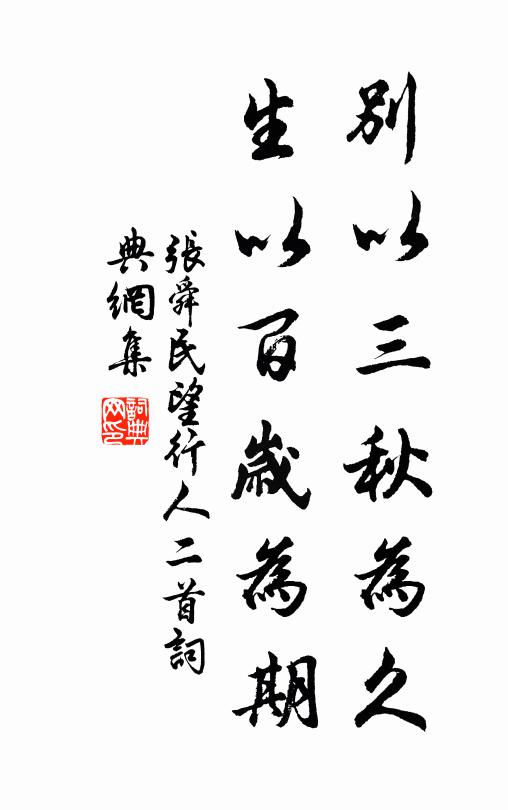 別以三秋為久
生以百歲為期
張舜民望行人二首詞
典網集
詞典
网印